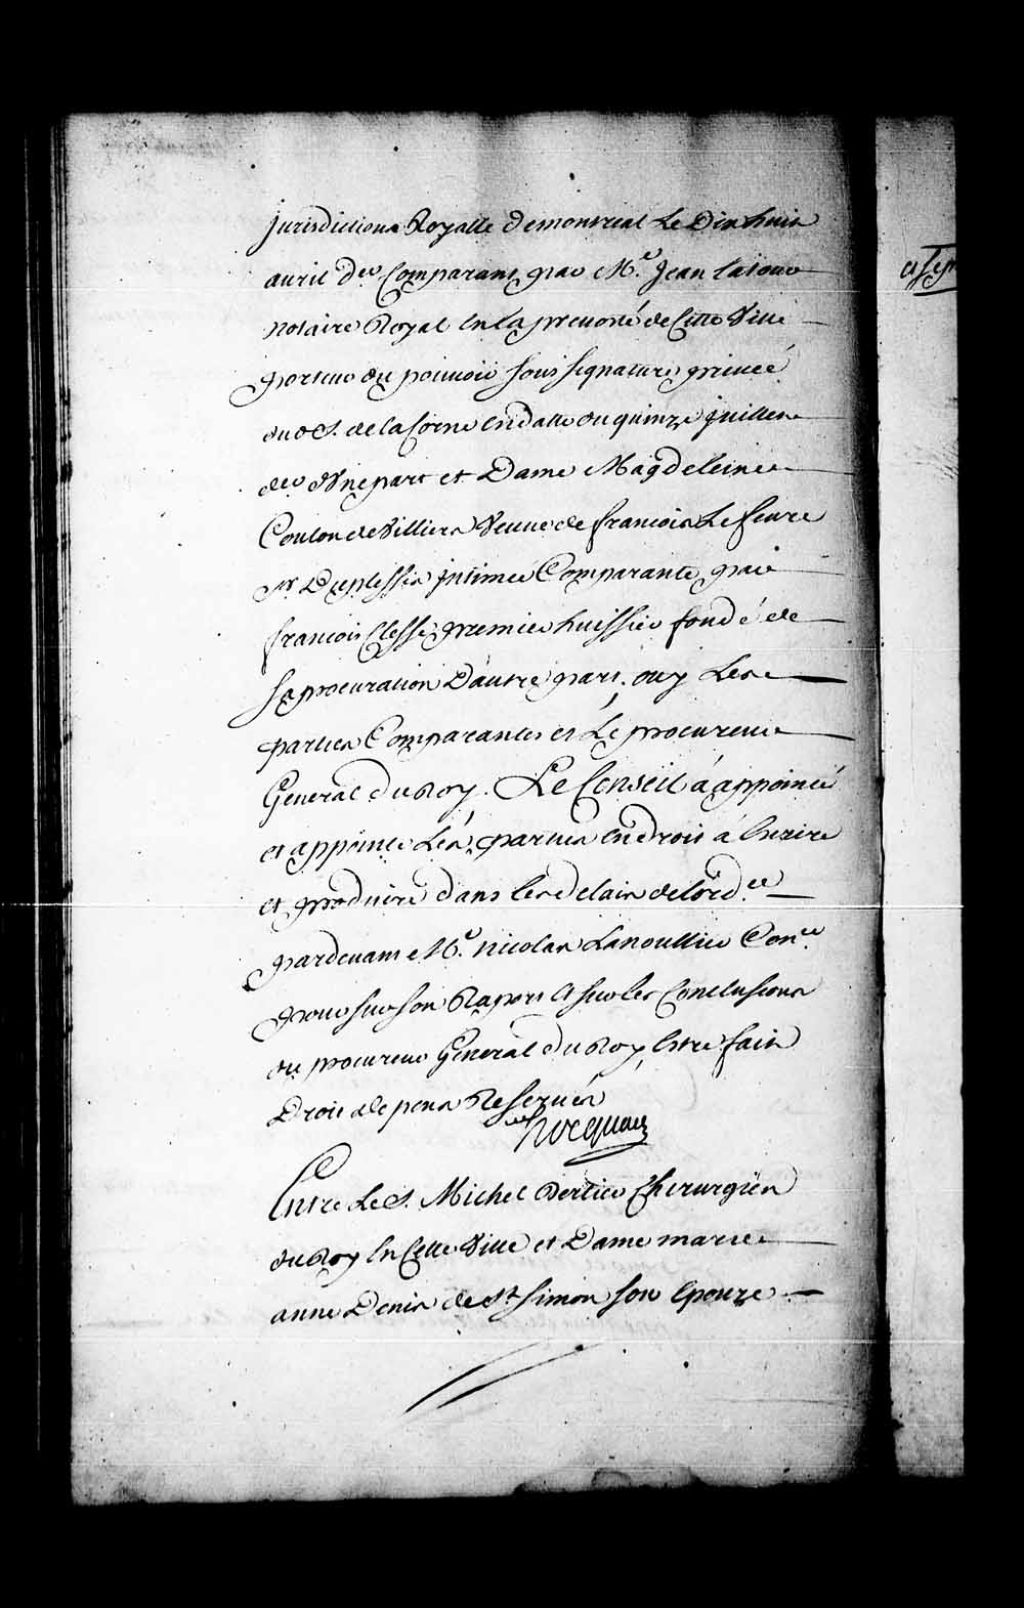 Jurisdiction Royalle de montreal Le Dixhuit
avril der Comparant par Me. Jean latour
notaire Royal En la prevosté de Cette Ville
porteur du pouvoir sous signature privée
dud S. de la Corne En datte du quinze juillet
der D'Une part et Dame Magdeleine
Coulon de Villiers Veuve de francois Le fevre
Sr. Duplessis jntimee Comparante par
francois Clesse premier huissier fondé de
sa procuration D'autre part. ouy Les
parties Comparantes et Le procureur
General du Roy. Le Conseil a appointé
et appointe Les parties En droit à Escrire
et produire dans les delais de l'ordce.
pardevant Me. Nicolas Lanoullier Coner.
pour sur son Raport et sur les Conclusions
du procureur General du Roy, Estre fait
Droit depens Reservés
hocquart
Entre Le S. Michel Bertier Chirurgien
du Roy En Cette Ville et Dame marie
anne Denis de St. Simon son Epouze
et sep